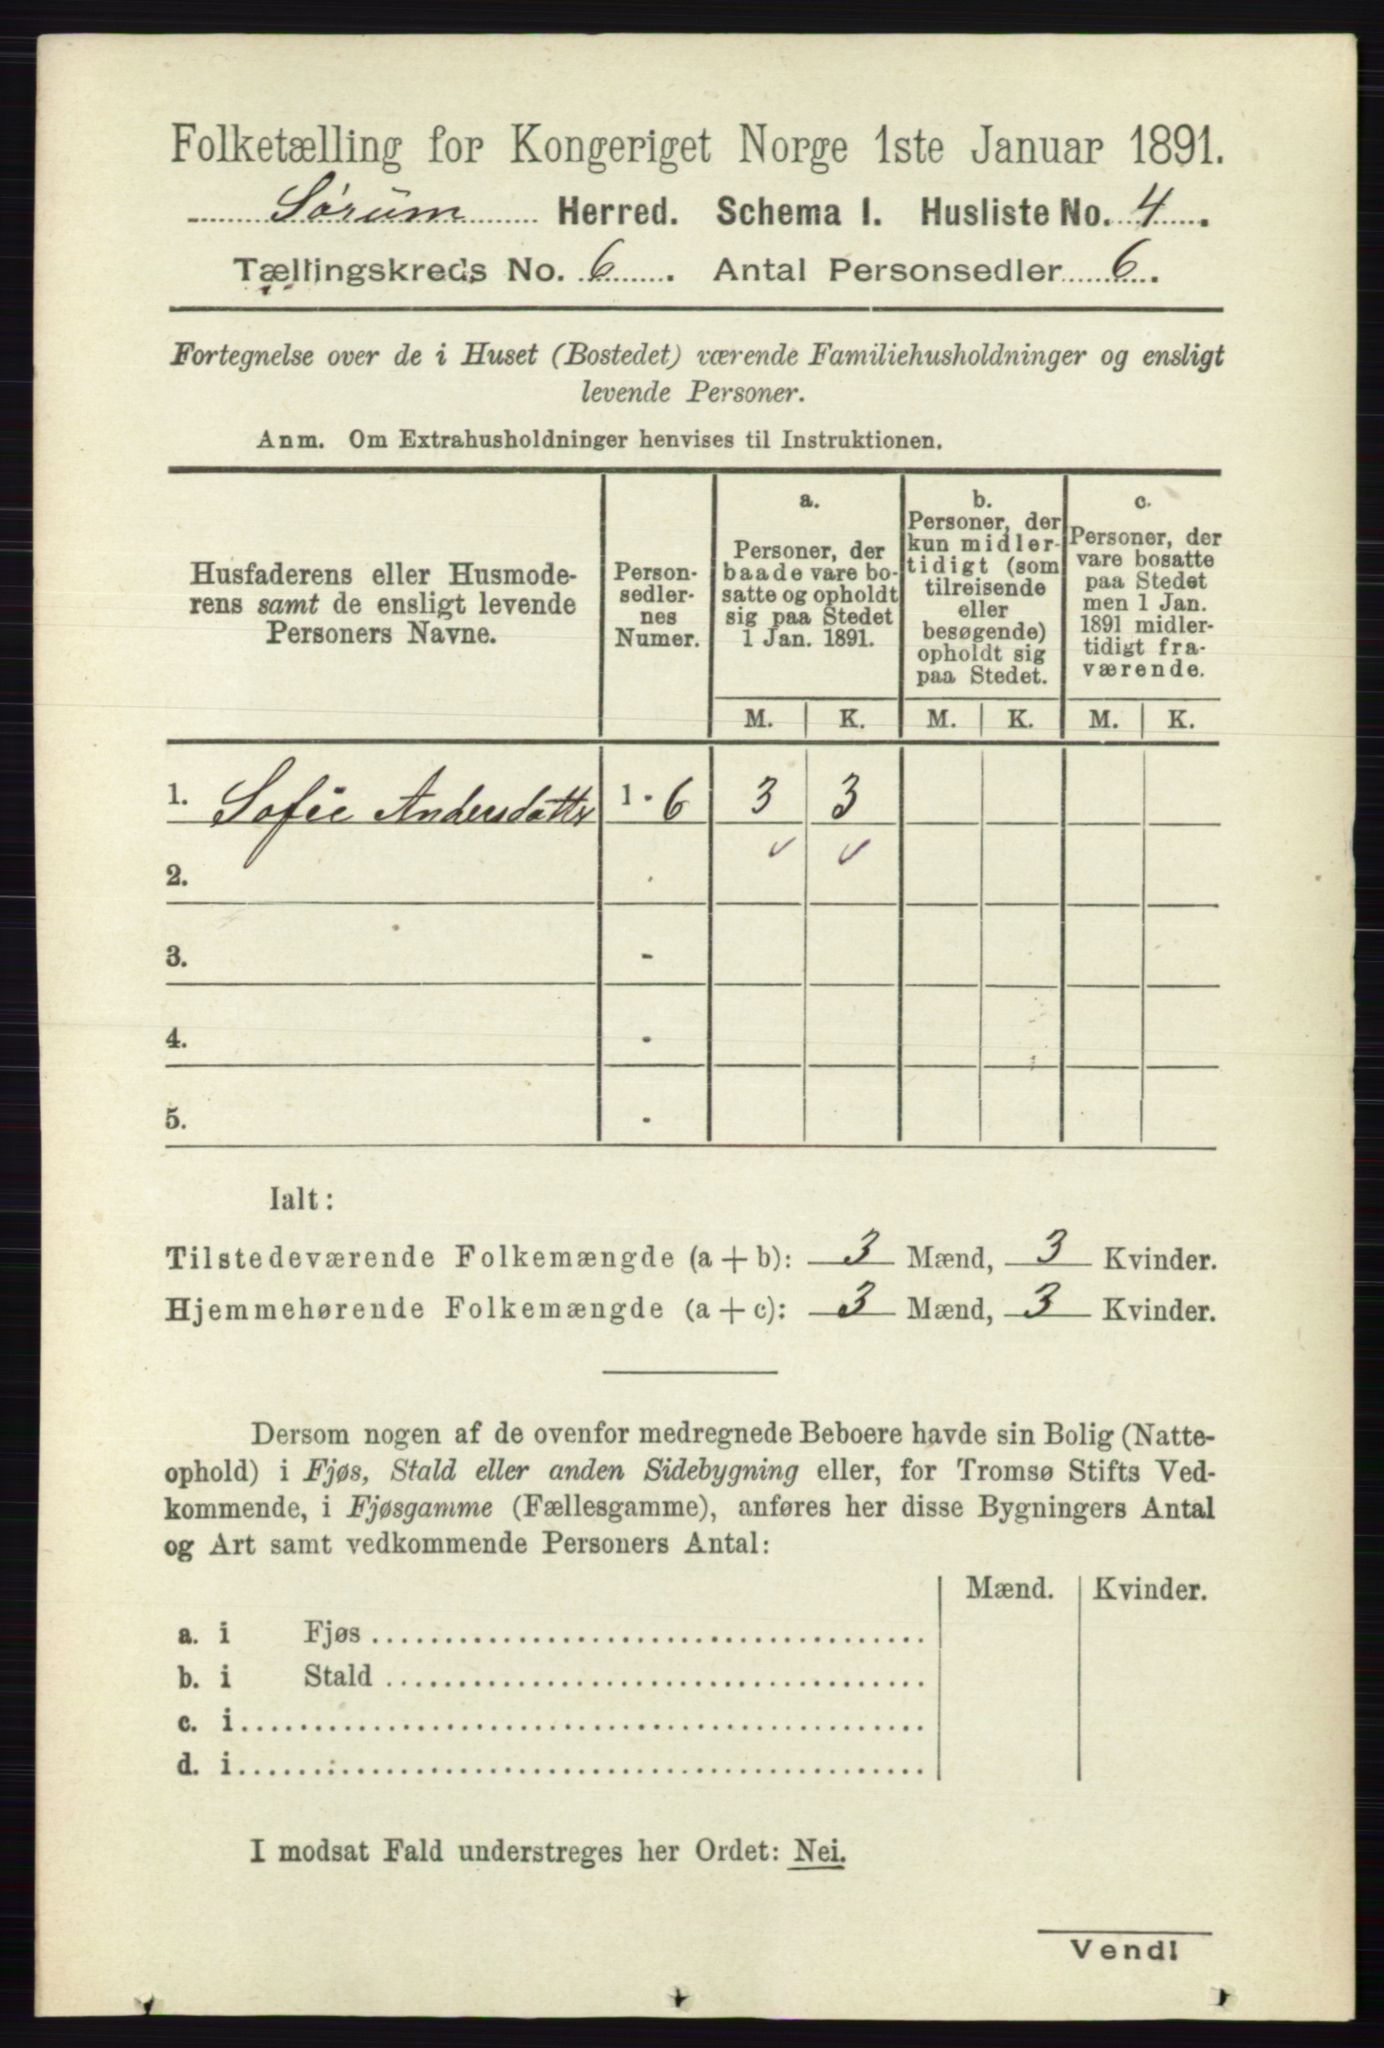 Folketælling for Kongeriget Norge 1ste Januar 1891.
Sørum Herred. Schema I. Husliste No. 4.
Tællingskreds No. 6. Antal Personsedler 6.
Fortegnelse over de i Huset (Bostedet) værende Familiehusholdninger og ensligt
levende Personer.
Anm. Om Extrahusholdninger henvises til Instruktionen.
Husfaderens eller Husmode-
rens samt de ensligt levende
Personers Navne.
Person-
sedler-
nes
Numer.
a.
Personer, der
baade vare bo-
satte og opholdt
sig paa Stedet
1 Jan. 1891.
b.
Personer, der
kun midler-
tidigt (som
tilreisende
eller
besøgende)
opholdt sig
paa Stedet.
c.
Personer, der
vare bosatte
paa Stedet
men 1 Jan.
1891 midler-
tidigt fra-
værende.
M. K. M. K. M. K.
1. Sofie Andersdatter 1 - 6 3 3
2. -
3. -
4. -
5. -
Ialt:
Tilstedeværende Folkemængde (a + b): 3 Mænd, 3 Kvinder.
Hjemmehørende Folkemængde (a + c): 3 Mænd, 3 Kvinder.
Dersom nogen af de ovenfor medregnede Beboere havde sin Bolig (Natte-
ophold) i Fjøs, Stald eller anden Sidebygning eller, for Tromsø Stifts Ved-
kommende, i Fjøsgamme (Fællesgamme), anføres her disse Bygningers Antal
og Art samt vedkommende Personers Antal:
Mænd. Kvinder.
a. i Fjøs
b. i Stald
c. i
d. i
I modsat Fald understreges her Ordet: Nei.
Vend!